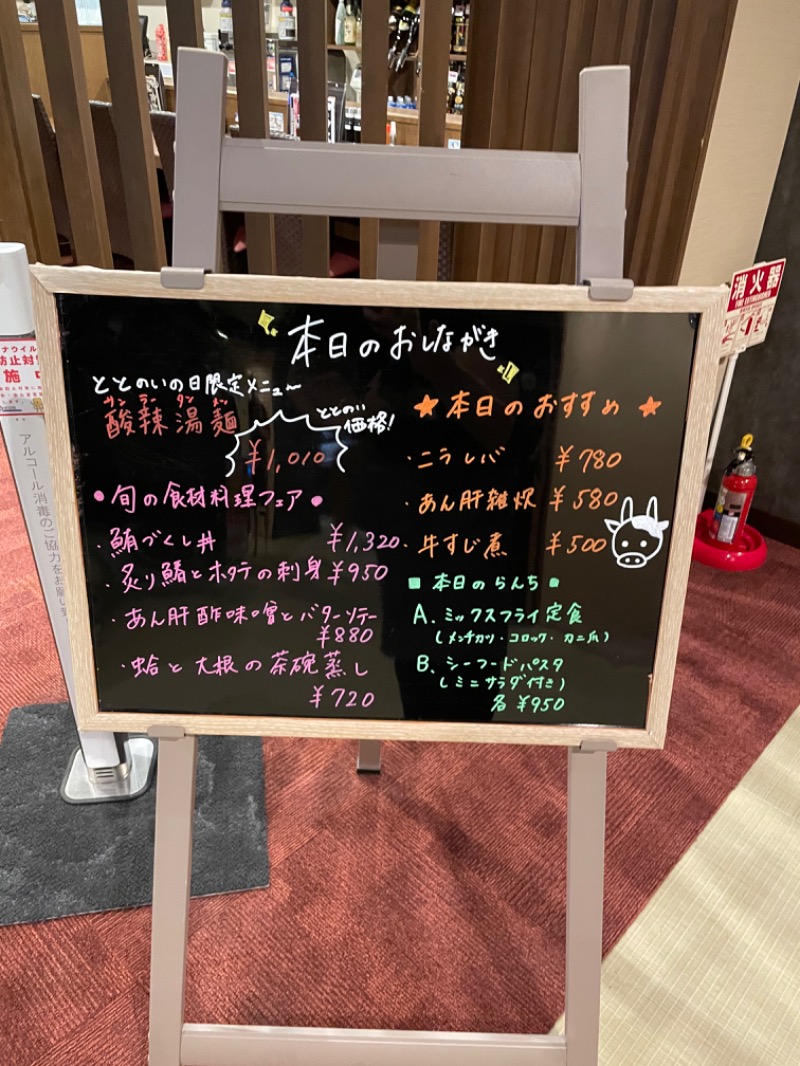 本日のおしながき
ととのいの日限定メニュー
サンラータンメン
酸辣湯麺
ととのい
価格!
¥1,010
●旬の食材料理フェア●
・鮪づくし丼 ¥1,320
・炙り鯖とホタテの刺身 ¥950
・あん肝酢味噌とバターソテー
¥880
・蛤と大根の茶碗蒸し
¥720
★本日のおすすめ★
・ニラレバ ¥780
・あん肝雑炊 ¥580
・牛すじ煮 ¥500
■本日のらんち■
A. ミックスフライ定食
(メンチカツ・コロッケ・カニ爪)
B. シーフードパスタ
(ミニサラダ付き)
各¥950
消火器
FIRE EXTINGUISHER
ナウイル
防止対
施
アルコール消毒のご協力をお願い